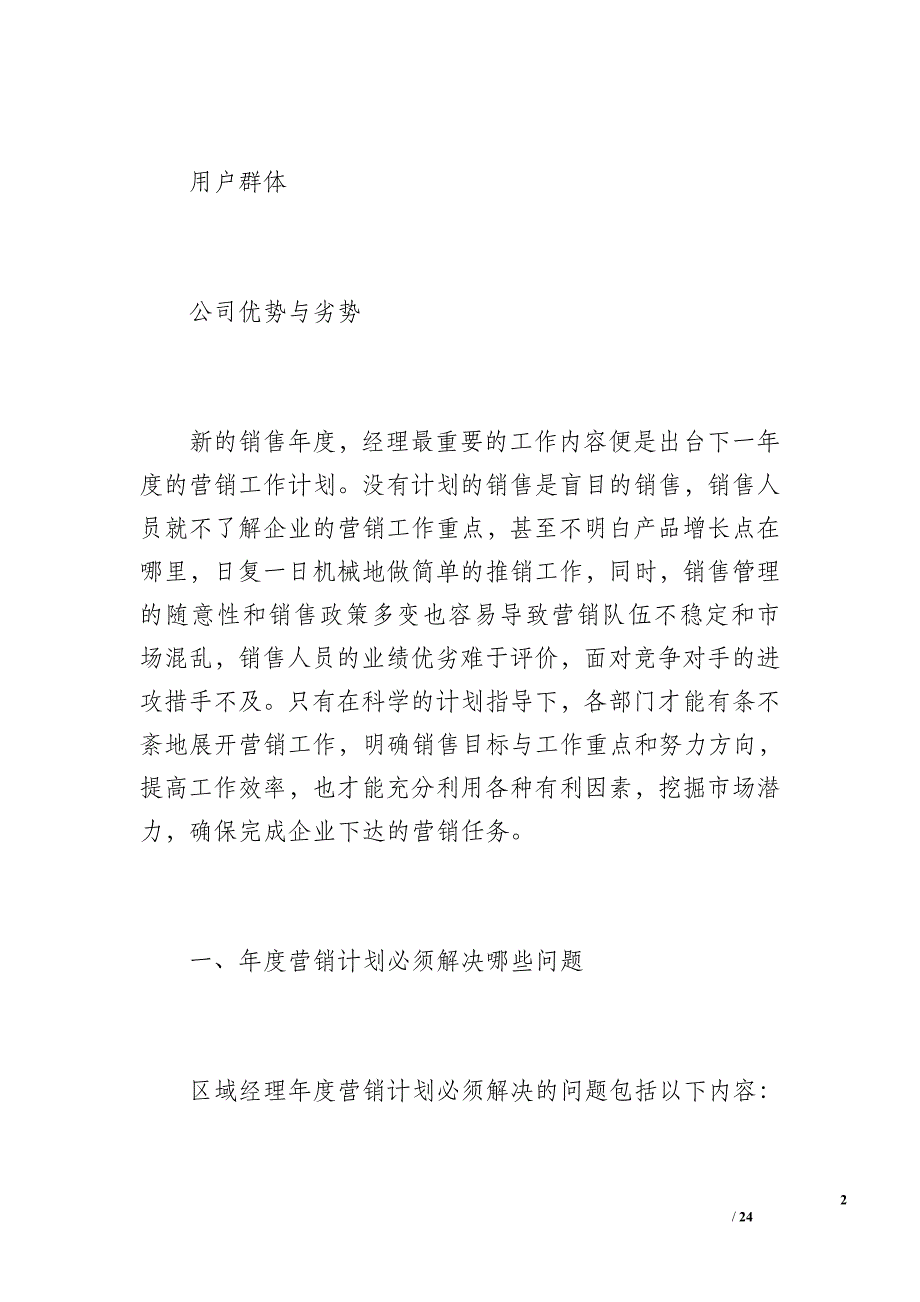 用户群体
公司优势与劣势
新的销售年度，经理最重要的工作内容便是出台下一年
度的营销工作计划。没有计划的销售是盲目的销售，销售人
员就不了解企业的营销工作重点，甚至不明白产品增长点在
哪里，日复一日机械地做简单的推销工作，同时，销售管理
的随意性和销售政策多变也容易导致营销队伍不稳定和市
场混乱，销售人员的业绩优劣难于评价，面对竞争对手的进
攻措手不及。只有在科学的计划指导下，各部门才能有条不
紊地展开营销工作，明确销售目标与工作重点和努力方向，
提高工作效率，也才能充分利用各种有利因素，挖掘市场潜
力，确保完成企业下达的营销任务。
一、年度营销计划必须解决哪些问题
区域经理年度营销计划必须解决的问题包括以下内容：
2
/ 24